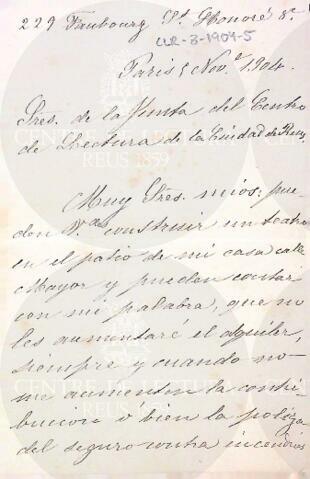 229 Faubourg St. Honoré St.
CLR-3-1904-5
Paris 5 Nov.e 1904.
Sres. de la Junta del Centro
de Lectura de la Ciudad de Reus,
Muy Sres. mios: pue-
den Vdas construir un teatro
en el patio de mi casa calle
Mayor y pueden contar
con mi palabra, que no
les aumentaré el alquiler,
siempre y cuando no
me aumenten la contri-
bucion ó bien la poliza
del seguro contra incendios
CENTRE DE LECTURA
REUS 1859
CENTRE DE LECTURA
REUS 1859